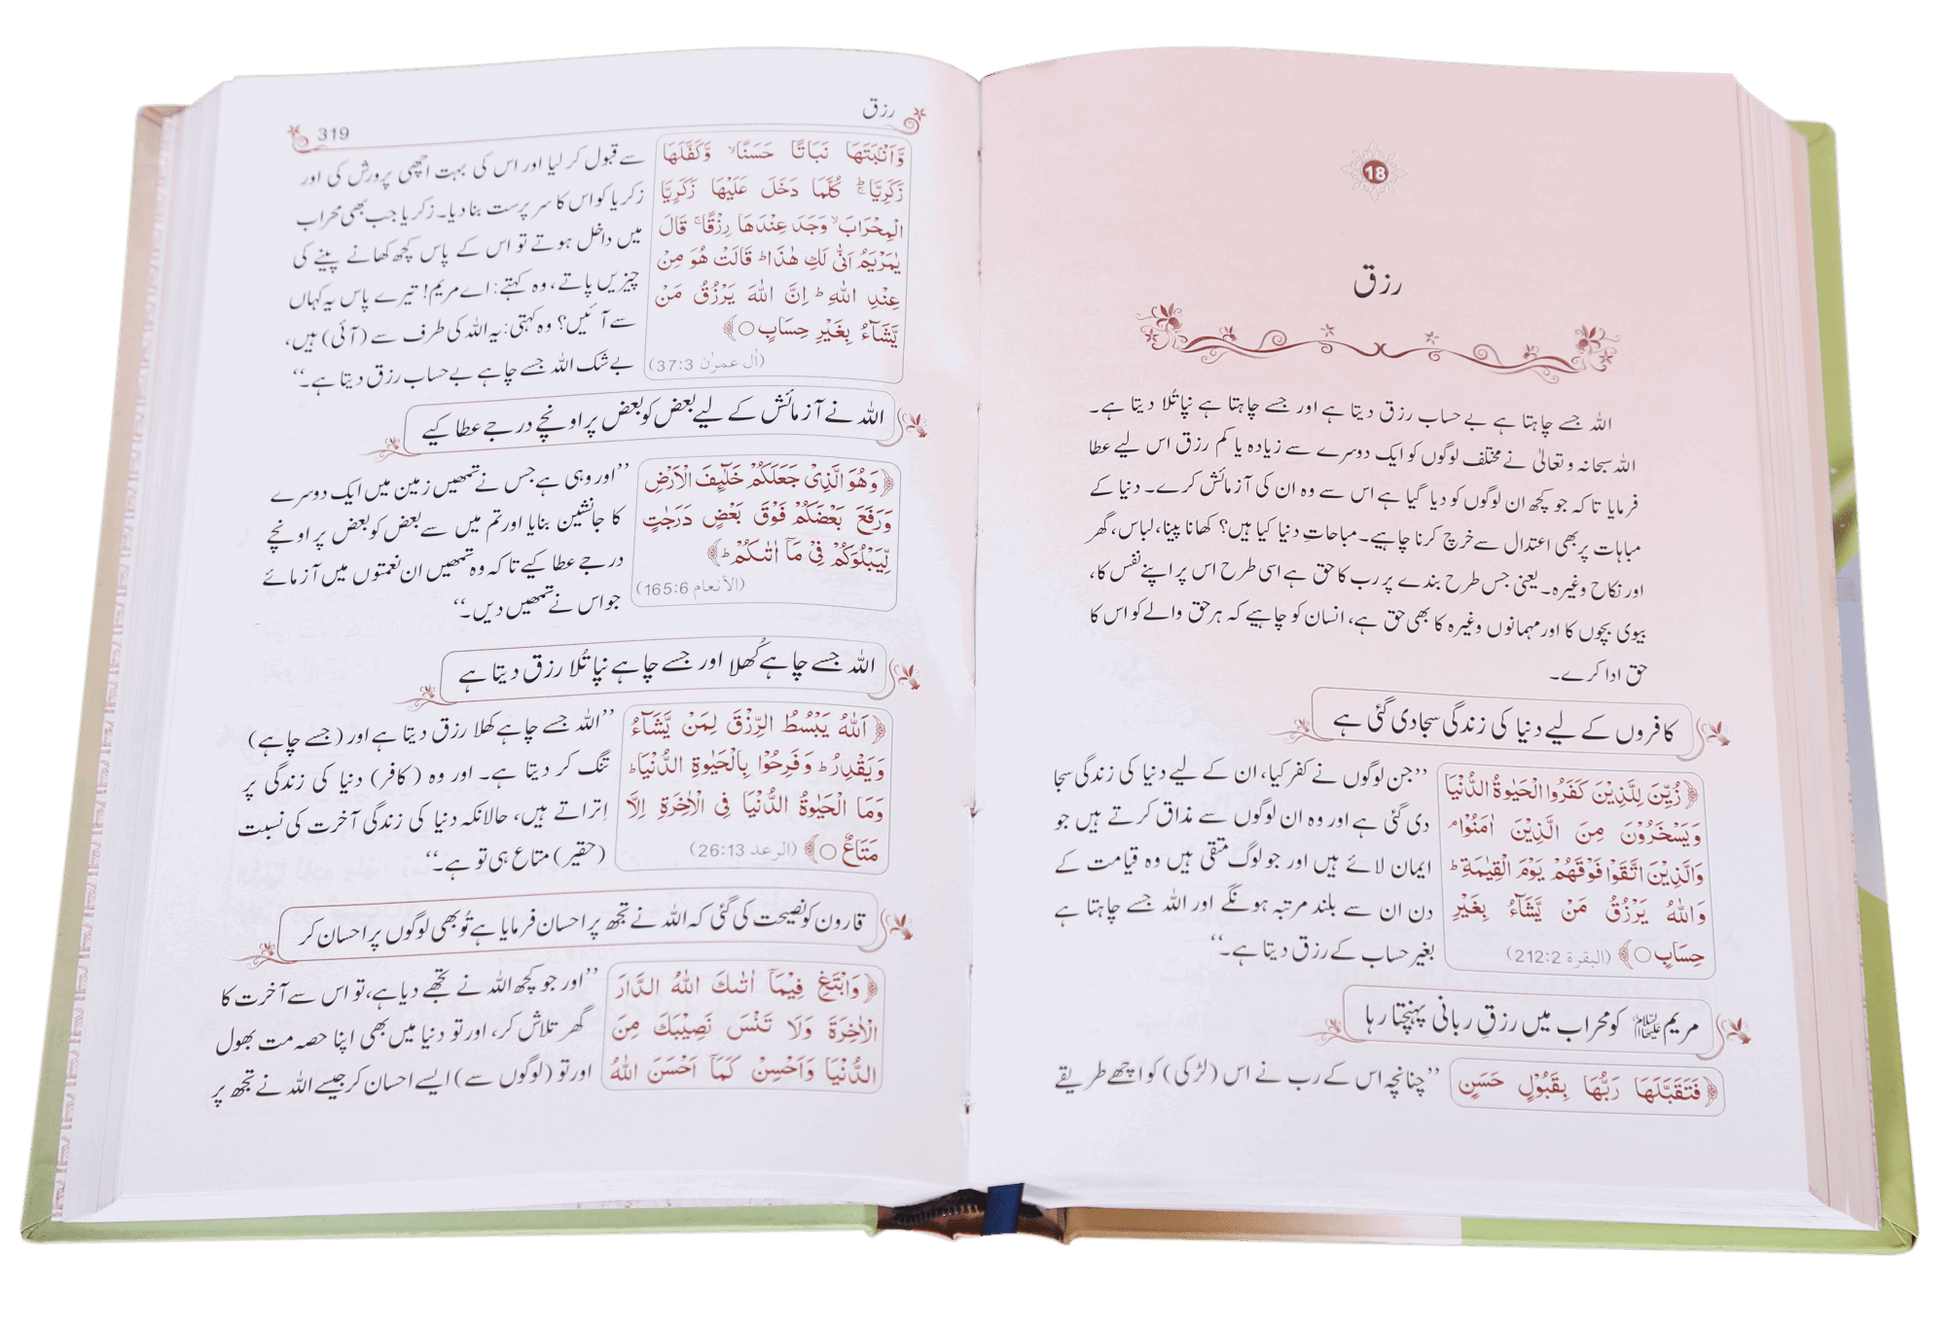 18
رزق
اللہ جسے چاہتا ہے بے حساب رزق دیتا ہے اور جسے چاہتا ہے نپا تُلا دیتا ہے۔
اللہ سبحانہ و تعالیٰ نے مختلف لوگوں کو ایک دوسرے سے زیادہ یا کم رزق اس لیے عطا
فرمایا تاکہ جو کچھ ان لوگوں کو دیا گیا ہے اس سے وہ ان کی آزمائش کرے۔ دنیا کے
مباہات پر بھی اعتدال سے خرچ کرنا چاہیے۔ مباحاتِ دنیا کیا ہیں؟ کھانا پینا، لباس، گھر
اور نکاح وغیرہ۔ یعنی جس طرح بندے پر رب کا حق ہے اسی طرح اس پر اپنے نفس کا،
بیوی بچوں کا اور مہمانوں وغیرہ کا بھی حق ہے، انسان کو چاہیے کہ ہر حق والے کو اس کا
حق ادا کرے۔
کافروں کے لیے دنیا کی زندگی سجا دی گئی ہے
﴿زُيِّنَ لِلَّذِيْنَ كَفَرُوا الْحَيٰوةُ الدُّنْيَا
وَيَسْخَرُوْنَ مِنَ الَّذِيْنَ اٰمَنُوْا ۘ
وَالَّذِيْنَ اتَّقَوْا فَوْقَهُمْ يَوْمَ الْقِيٰمَةِ ؕ
وَاللّٰهُ يَرْزُقُ مَنْ يَّشَآءُ بِغَيْرِ
حِسَابٍ ○﴾ (البقرة 212:2)
’’جن لوگوں نے کفر کیا، ان کے لیے دنیا کی زندگی سجا
دی گئی ہے اور وہ ان لوگوں سے مذاق کرتے ہیں جو
ایمان لائے ہیں اور جو لوگ متقی ہیں وہ قیامت کے
دن ان سے بلند مرتبہ ہونگے اور اللہ جسے چاہتا ہے
بغیر حساب کے رزق دیتا ہے۔‘‘
مریم علیہا السلام کو محراب میں رزقِ ربانی پہنچتا رہا
﴿فَتَقَبَّلَهَا رَبُّهَا بِقَبُوْلٍ حَسَنٍ
’’چنانچہ اس کے رب نے اس (لڑکی) کو اچھے طریقے
رزق
319
وَّاَنْۢبَتَهَا نَبَاتًا حَسَنًا ۙ وَّكَفَّلَهَا
زَكَرِيَّا ؕۚ كُلَّمَا دَخَلَ عَلَيْهَا زَكَرِيَّا
الْمِحْرَابَ ۙ وَجَدَ عِنْدَهَا رِزْقًا ۚ قَالَ
يٰمَرْيَمُ اَنّٰى لَكِ هٰذَا ؕ قَالَتْ هُوَ مِنْ
عِنْدِ اللّٰهِ ؕ اِنَّ اللّٰهَ يَرْزُقُ مَنْ
يَّشَآءُ بِغَيْرِ حِسَابٍ ○﴾
(اٰل عمرٰن 37:3)
سے قبول کر لیا اور اس کی بہت اچھی پرورش کی اور
زکریا کو اس کا سرپرست بنا دیا۔ زکریا جب بھی محراب
میں داخل ہوتے تو اس کے پاس کچھ کھانے پینے کی
چیزیں پاتے، وہ کہتے: اے مریم! تیرے پاس یہ کہاں
سے آئیں؟ وہ کہتی: یہ اللہ کی طرف سے (آئی) ہیں،
بے شک اللہ جسے چاہے بے حساب رزق دیتا ہے۔‘‘
اللہ نے آزمائش کے لیے بعض کو بعض پر اونچے درجے عطا کیے
﴿وَهُوَ الَّذِيْ جَعَلَكُمْ خَلٰٓئِفَ الْاَرْضِ
وَرَفَعَ بَعْضَكُمْ فَوْقَ بَعْضٍ دَرَجٰتٍ
لِّيَبْلُوَكُمْ فِيْ مَاۤ اٰتٰىكُمْ ؕ﴾
(الأنعام 165:6)
’’اور وہی ہے جس نے تمھیں زمین میں ایک دوسرے
کا جانشین بنایا اور تم میں سے بعض کو بعض پر اونچے
درجے عطا کیے تاکہ وہ تمھیں ان نعمتوں میں آزمائے
جو اس نے تمھیں دیں۔‘‘
اللہ جسے چاہے کُھلا اور جسے چاہے نپا تُلا رزق دیتا ہے
﴿اَللّٰهُ يَبْسُطُ الرِّزْقَ لِمَنْ يَّشَآءُ
وَيَقْدِرُ ؕ وَفَرِحُوْا بِالْحَيٰوةِ الدُّنْيَا ؕ
وَمَا الْحَيٰوةُ الدُّنْيَا فِي الْاٰخِرَةِ اِلَّا
مَتَاعٌ ○﴾ (الرعد 26:13)
’’اللہ جسے چاہے کھلا رزق دیتا ہے اور (جسے چاہے)
تنگ کر دیتا ہے۔ اور وہ (کافر) دنیا کی زندگی پر
اِتراتے ہیں، حالانکہ دنیا کی زندگی آخرت کی نسبت
(حقیر) متاع ہی تو ہے۔‘‘
قارون کو نصیحت کی گئی کہ اللہ نے تجھ پر احسان فرمایا ہے تُو بھی لوگوں پر احسان کر
﴿وَابْتَغِ فِيْمَاۤ اٰتٰىكَ اللّٰهُ الدَّارَ
الْاٰخِرَةَ وَلَا تَنْسَ نَصِيْبَكَ مِنَ
الدُّنْيَا وَاَحْسِنْ كَمَاۤ اَحْسَنَ اللّٰهُ
’’اور جو کچھ اللہ نے تجھے دیا ہے، تو اس سے آخرت کا
گھر تلاش کر، اور تو دنیا میں بھی اپنا حصہ مت بھول
اور تو (لوگوں سے) ایسے احسان کر جیسے اللہ نے تجھ پر